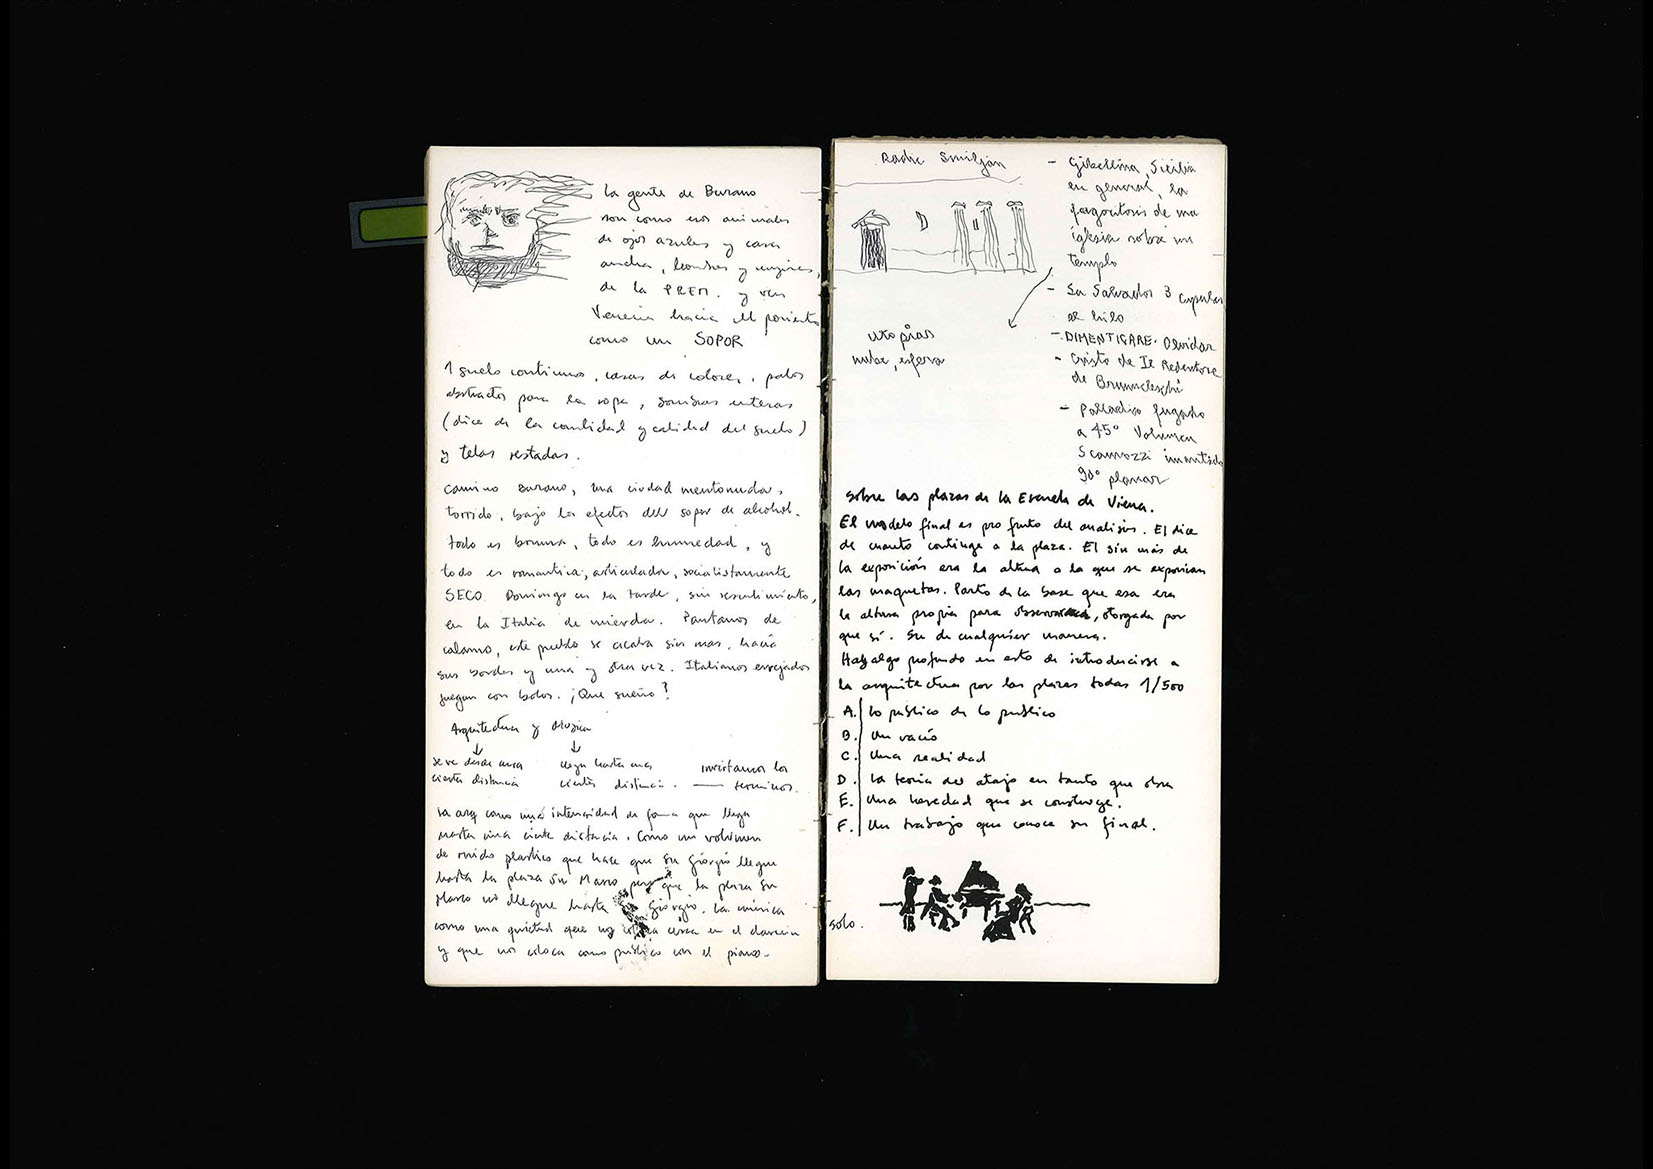 La gente de Burano
son como esos animales
de ojos azules y cara
ancha, hombres y mujeres,
de la PREM. y ven
Venecia hacia el poniente
como un SOPOR
1 suelo continuo, casas de colores, palos
abstractos para la ropa, sombras enteras
(dice de la cantidad y calidad del suelo)
y telas restadas.
Camino Burano, una ciudad
torrido, bajo los efectos del sopor de alcohol.
todo es bruma, todo es humedad, y
todo es romantica, articulada, socialistamente
SECO. Domingo en la tarde, sin resentimiento,
en la Italia de mierda. Pantanos de
calamo, este pueblo se acaba sin mas, hacia
sus bordes y una y otra vez. Italianos enojados
juegan con bolos. ¡Que sueño?
Arquitectura y Musica
se ve desde una
cierta distancia
llega hasta una
cierta distancia.
invirtamos los
terminos.
la arq como una intensidad de forma que llega
hasta una cierta distancia. Como un volumen
de ruido plastico que hace que Sn Giorgio llegue
hasta la plaza Sn Marco pero que la plaza Sn
Marco no llegue hasta Sn Giorgio. La música
como una quietud que nos coloca cerca en el
y que nos coloca como publico con el piano.
Radic Smiljan
utopias
nube, esfera
- Gibellina, Sicilia
en general, la
fagocitosis de una
iglesia sobre un
templo
- Sn Salvador 3 cupulas
al hilo
- DIMENTICARE. Olvidar
- Cristo de Il Redentore
de Brunneleschi
- Palladio fugado
a 45° Volumen
Scamozzi
90° planar
Sobre las plazas de la Escuela de Viena.
El modelo final es pro funto del analisis. El dice
de cuanto continga a la plaza. El sin más de
la exposición era la altura a la que se exponian
las maquetas. Parto de la base que esa era
la altura propia para observarlas, otorgada por
que sí. Sn de cualquier manera.
Hay algo profundo en esto de introducirse a
la arquitectura por las plazas todas 1/500
A. Lo público de lo publico
B. Un vacío
C. Una realidad
D. La teoria del atajo en tanto que obra
E. Una heredad que se construye.
F. Un trabajo que conoce su final.
solo.